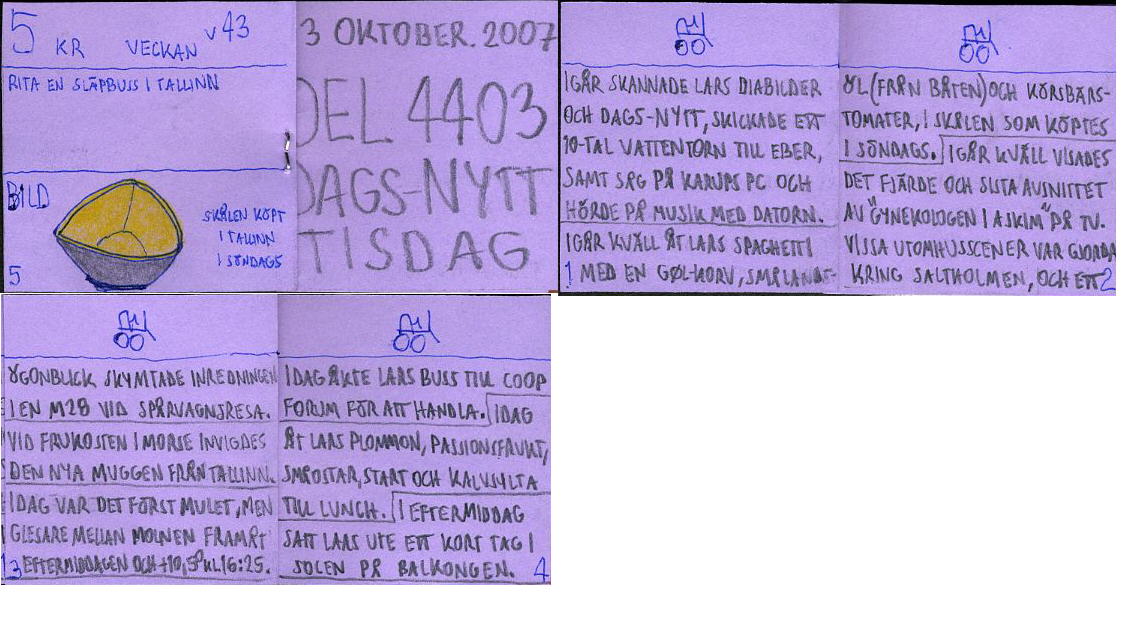 5 KR VECKAN V 43
RITA EN SLÄPBUSS I TALLINN
BILD
SKÅLEN KÖPT
I TALLINN
I SÖNDAGS
5
3 OKTOBER. 2007
DEL 4403
DAGS-NYTT
TISDAG
IGÅR SKANNADE LARS DIABILDER
OCH DAGS-NYTT, SKICKADE ETT
10-TAL VATTENTORN TILL EBER,
SAMT SÅG PÅ KARUPS PC OCH
HÖRDE PÅ MUSIK MED DATORN.
IGÅR KVÄLL ÅT LARS SPAGHETTI
1 MED EN GØL-KORV, SMÅLANDS-
ÖL (FRÅN BÅTEN) OCH KÖRSBÄRS-
TOMATER, I SKÅLEN SOM KÖPTES
I SÖNDAGS. IGÅR KVÄLL VISADES
DET FJÄRDE OCH SISTA AVSNITTET
AV "GYNEKOLOGEN I ASKIM" PÅ TV.
VISSA UTOMHUSSCENER VAR GJORDA
KRING SALTHOLMEN, OCH ETT 2
ÖGONBLICK SKYMTADE INREDNINGEN
I EN M28 VID SPÅRVAGNSRESA.
VID FRUKOSTEN I MORSE INVIGDES
DEN NYA MUGGEN FRÅN TALLINN.
IDAG VAR DET FÖRST MULET, MEN
GLESARE MELLAN MOLNEN FRAMÅT
3 EFTERMIDDAGEN OCH +10,5° KL.16:25.
IDAG ÅKTE LARS BUSS TILL COOP
FORUM FÖR ATT HANDLA. IDAG
ÅT LARS PLOMMON, PASSIONSFRUKT,
SMÅOSTAR, START OCH KALVSYLTA
TILL LUNCH. I EFTERMIDDAG
SATT LARS UTE ETT KORT TAG I
SOLEN PÅ BALKONGEN. 4